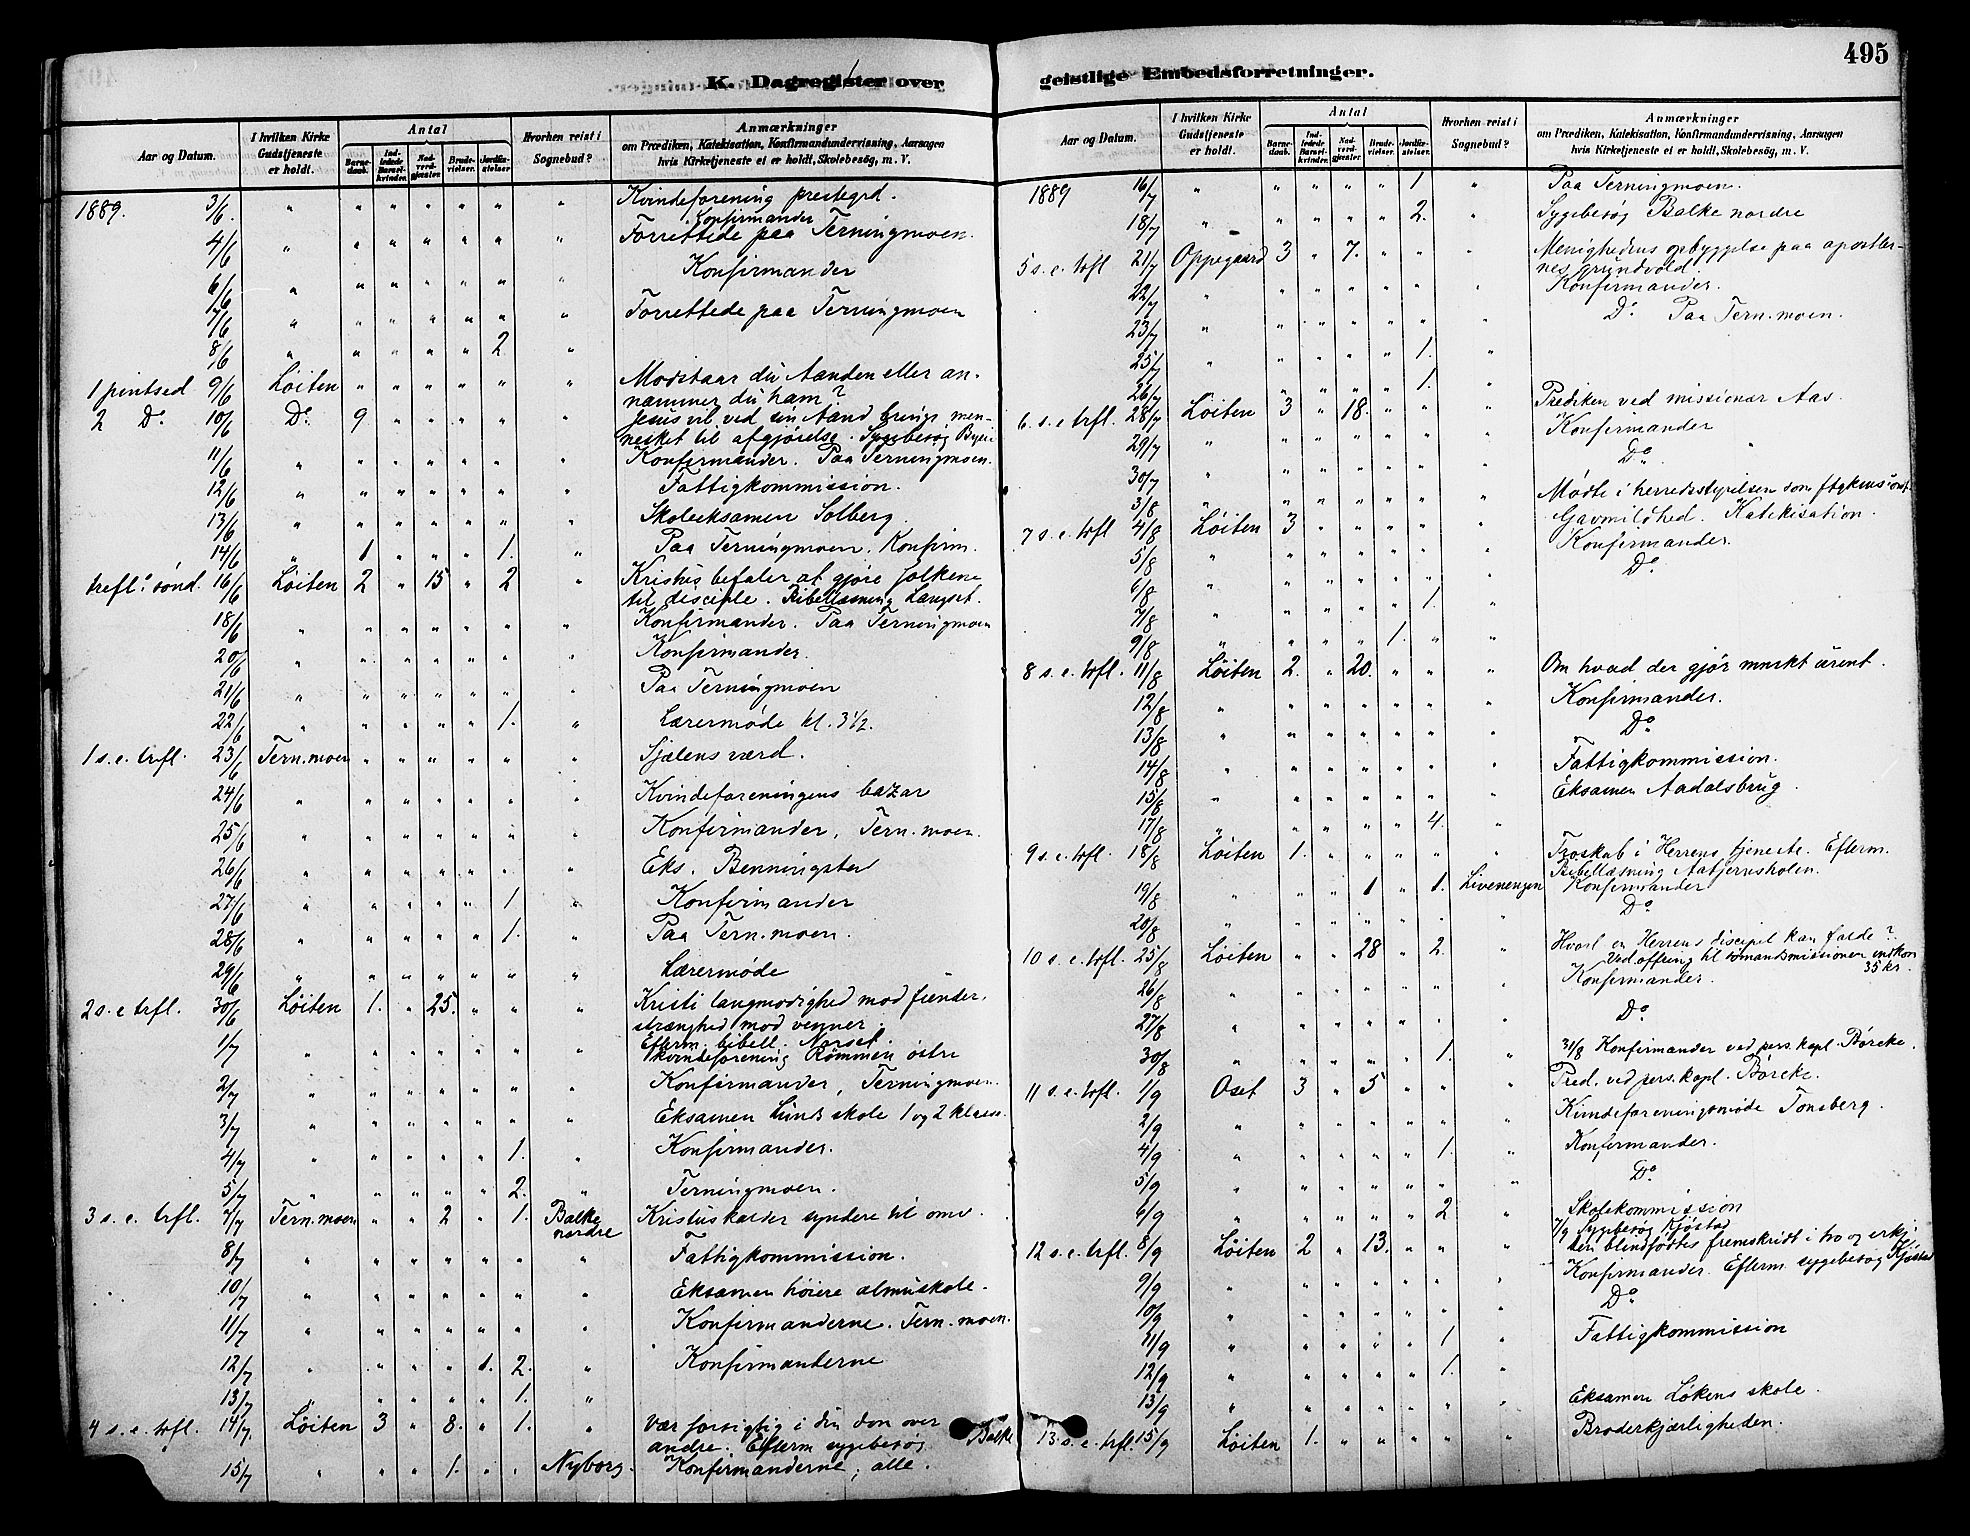 K. Dagregister over
Aar og Datum.
I hvilken Kirke Gudstjeneste er holdt.
Antal
Barne-daab.
Ind-ledede Barsel-kvinder.
Nad-verd-gjæster.
Brude-vielser.
Jordfæ-stelser
Hvorhen reist i Sognebud?
Anmærkninger
om Prædiken, Katekisation, Konfirmandundervisning, Aarsagen
hvis Kirketjeneste ei er holdt, Skolebesøg, m. V.
1889. 3/6. " " " " " " " Kvindeforening prestegrd.
Konfirmander
4/6 " " " " " " " Forrettede paa Terningmoen.
6/6 " " " " " " " Konfirmander
7/6 " " " " " " " Forrettede paa Terningmoen
8/6 " " " " " 2 "
1 pintsed 9/6 Løiten " " " " " " Modstaar du Aanden eller an-
nammer du ham?
2 Do 10/6 Do 9 " " " " " Jesus vil ved sin Aand bringe men-
nesket til afgjørelse. Sygebesøg Byen
11/6 " " " " " " " Konfirmander. Paa Terningmoen.
12/6 " " " " " " " Fattigkommission.
13/6 " " " " " " " Skoleeksamen Solberg.
14/6 " 1 " " " 1. " Paa Terningmoen. Konfirm.
trefl.s sønd. 16/6 Løiten 2 " 15 " 2 " Kristus befaler at gjøre folkene
til disciple. Bibellæsning Længset.
18/6 " " " " " " " Konfirmander. Paa Terningmoen
20/6 " " " " " " " Konfirmander.
21/6 " " " " " " " Paa Terningmoen
22/6 " " " " " 1. " Lærermøde kl. 3 1/2.
1 s. e. trfl. 23/6 Tern.moen " " " " " " Sjælens værd.
24/6 " " " " " " " Kvindeforeningens bazar
25/6 " " " " " " " Konfirmander, Tern.moen.
26/6 " " " " " " " Eks. Benningstad
27/6 " " " " " 1 " Konfirmander
28/6 " " " " " 1. " Paa Tern.moen.
29/6 " " " " " " " Lærermøde
2 s. e trfl. 30/6 Løiten 1. " 25. " " " Kristi langmodighed mod fiender,
strænghed mod venner.
Efterm. bibell. Norset.
1/7 " " " " " " " Kvindeforening Rømmen østre
2/7 " " " " " " " Konfirmander, Terningmoen.
3/7 " " " " " " " Eksamen Lunds skole 1 og 2 klasse.
4/7 " " " " " 1. " Konfirmander.
5/7 " " " " " 2. " Terningmoen.
3 s. e. trfl. 7/7 Tern.moen " " 2 " 1. Balke nordre Kristus kalder syndere til omv.
8/7 " " " " " " " Fattigkommission.
10/7 " " " " " " " Eksamen høiere almuskole.
11/7 " " " " " " " Konfirmanderne. Tern.moen.
12/7 " " " " 1. 2. " Konfirmanterne
13/7 " " " " " 1. "
4 s. e. trfl. 14/7 Løiten 3 " 8. " 1. " Vær forsigtig i din dom over
andre. Efterm sygebesøg Balke
15/7 " " " 1. " " Nyborg. Konfirmanderne, alle.
geistlige Embedsforretninger.
495
Aar og Datum.
I hvilken Kirke Gudstjeneste er holdt.
Antal
Barne-daab.
Ind-ledede Barsel-kvinder.
Nad-verd-gjæster.
Brude-vielser.
Jordfæ-stelser.
Hvorhen reist i Sognebud?
Anmærkninger
om Prædiken, Katekisation, Konfirmandundervisning, Aarsagen
hvis Kirketjeneste ei er holdt, Skolebesøg, m. V.
1889 16/7 " " " " " 1. " Paa Terningmoen.
18/7 " " " " " 2. " Sygebesøg Balke nordre
5 s. e. trfl 21/7 Oppegaard 3 " 7. " " " Menighedens opbyggelse paa apostler-
nes grundvold.
22/7 " " " " " " " Konfirmander.
23/7 " " " " " " " Do Paa Tern.moen.
25/7 " " " " " 1. "
26/7 " " " " 1. "
6. s. e. trfl. 28/7 Løiten 3 " 18. " " " Prediken ved missionær Aas.
29/7 " " " " " " " Konfirmander
30/7 " " " " " " " Do
3/8 " " " " " " " Møde i herredsstyrelsen som
7 s. e. trfl 4/8 Løiten 3 " " " " " Gavmildhed. Katekisation.
5/8 " " " " " " " Konfirmander.
6/8 " " " " " " " Do
7/8 " " " " " 1. "
9/8 " " " " 1. " "
8 s. e. trfl. 11/8 Løiten 2. " 20. " " " Om hvad der gjør munskt ürent.
12/8 " " " " " " " Konfirmander.
13/8 " " " " " " " Do
14/8 " " " " " " " Fattigkommission.
15/8 " " " " " " " Eksamen Aadalsbrug.
17/8 " " " " " 4. "
9 s. e. trfl. 18/8 Løiten 1. " " " " " Troskab i Herrens tjeneste. Efterm.
Bibellæsning
19/8 " " " 1 " 1. Livenengen Konfirmander
20/8 " " " " " " " Do
10 s. e. trfl. 25/8 Løiten " " 28 " 2. " Hvorl en Herrens discipel kan falde?
Ved ofring til sømandsmissionen indkom
35 kr.
26/8 " " " " " " " Konfirmander.
27/8 " " " " " " " Do
30/8 " " " " " 1. " 31/8 Konfirmander ved pers. kapl. Børcke.
11 s. e. trfl. 1/9 Oset 3 " 5 " " " Pred. ved pers. kapl. Børcke.
2/9 " " " " " " " Kvindeforeningsmøde Tonsberg.
4/9 " " " " " 1. " Konfirmander.
5/9 " " " " " " " Do
6/9 " " " " " 2 " Skolekommission
7/9 Sygebesøg Kjøstad
12 s. e. trfl. 8/9 Løiten 2 " 13. " " " Den blindfødtes fremskridt i tro og erkj.
9/9 " " " " " " " Konfirmander. Efterm. sygebesøg Kjøstad
10/9 " " " " " " " Do
11/9 " " " " " 1 " Fattigkommission
12/9 " " " " " 1. "
13/9 " " " " " " " Eksamen Løkens skole.
13 s. e. trfl. 15/9 Løiten 1. " " " " " Broderkjærligheden.